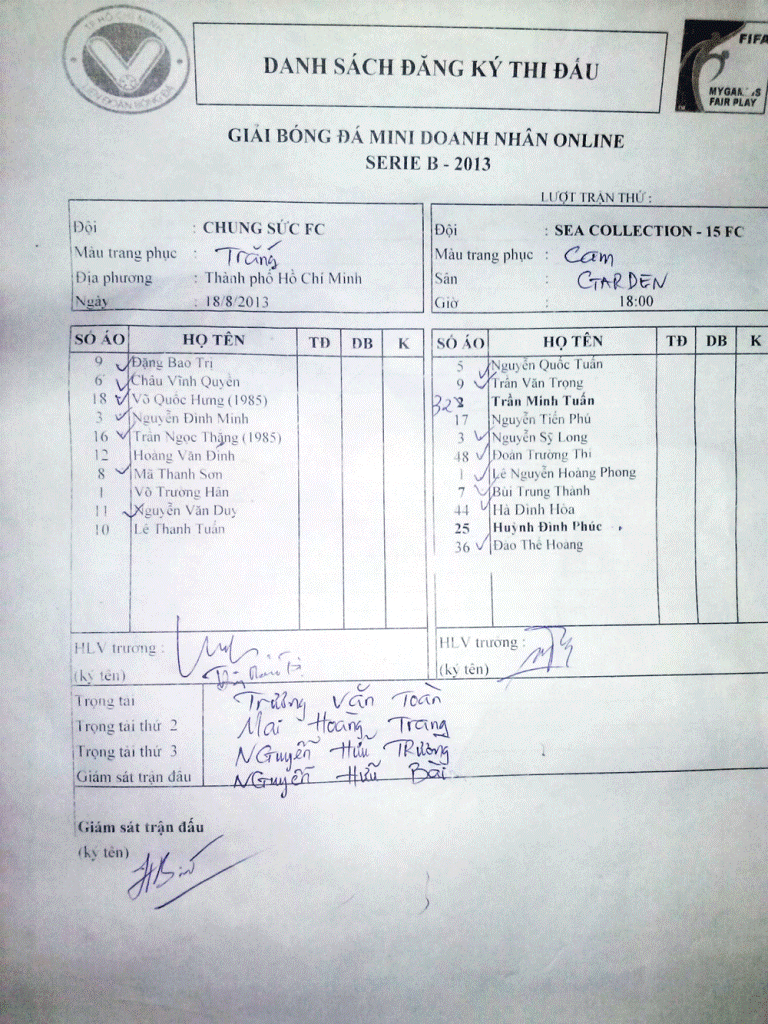 TP HỒ CHÍ MINH
LIÊN ĐOÀN BÓNG ĐÁ
DANH SÁCH ĐĂNG KÝ THI ĐẤU
FIFA
MY GAME IS
FAIR PLAY
GIẢI BÓNG ĐÁ MINI DOANH NHÂN ONLINE
SERIE B - 2013
LƯỢT TRẬN THỨ :
Đội : CHUNG SỨC FC
Màu trang phục : Trắng
Địa phương : Thành phố Hồ Chí Minh
Ngày : 18/8/2013
Đội : SEA COLLECTION - 15 FC
Màu trang phục : Cam
Sân : GARDEN
Giờ : 18:00
SỐ ÁO HỌ TÊN TĐ ĐB K
9 Đặng Bao Trị
6 Châu Vĩnh Quyền
18 Võ Quốc Hưng (1985)
3 Nguyễn Đình Minh
16 Trần Ngọc Thặng (1985)
12 Hoàng Văn Đính
8 Mã Thanh Sơn
1 Võ Trường Hân
11 Nguyễn Văn Duy
10 Lê Thanh Tuấn
SỐ ÁO HỌ TÊN TĐ DB K
5 Nguyễn Quốc Tuấn
9 Trần Văn Trọng
32 Trần Minh Tuấn
17 Nguyễn Tiến Phú
3 Nguyễn Sỹ Long
48 Đoàn Trường Thi
1 Lê Nguyễn Hoàng Phong
7 Bùi Trung Thành
44 Hà Đình Hòa
25 Huỳnh Đình Phúc
36 Đào Thế Hoàng
HLV trưởng :
(ký tên)
HLV trưởng :
(ký tên)
Trọng tài Trương Văn Toàn
Trọng tài thứ 2 Mai Hoàng Trang
Trọng tài thứ 3 NGuyễn Hữu TRường
Giám sát trận đấu NGuyễn Hữu Bài
Giám sát trận đấu
(ký tên)